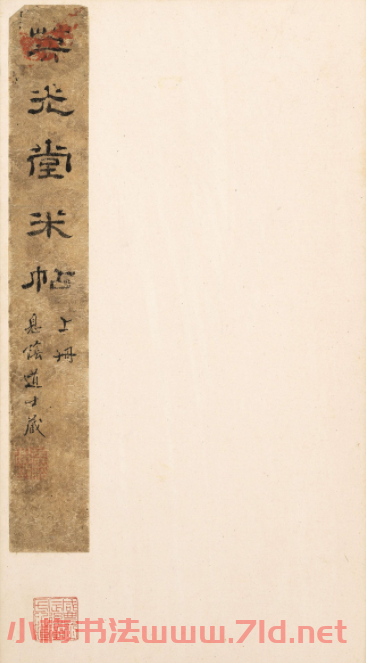 英光堂米帖
上冊
息蔭道士藏
小河书法www.7ld.net